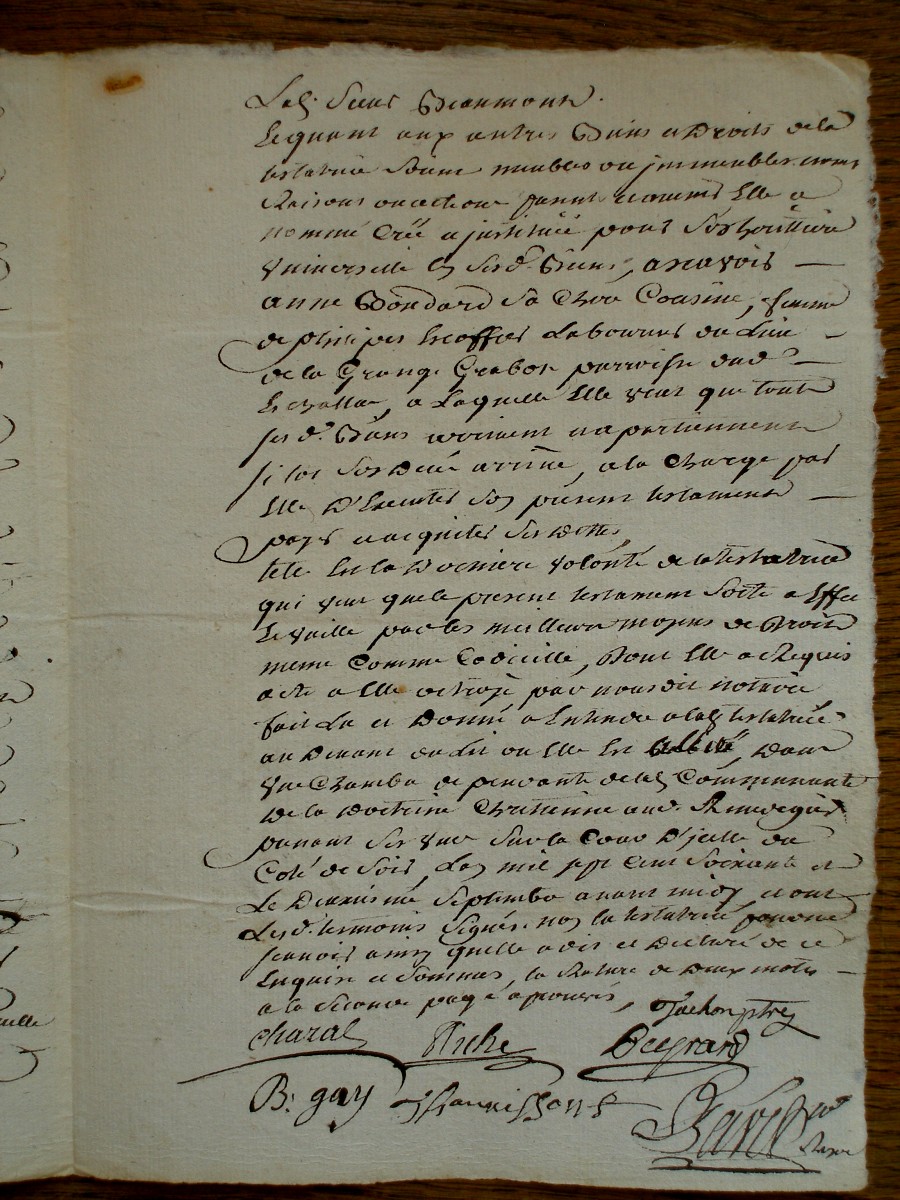 Sieur Beaumont.
Et quant aux autres Biens et Droits de la
testatrice soient meubles ou immeubles noms
Raisons ou actions elle a
nommé Créé et institué pour son héritière
Universelle en ses d. Biens, ascavoir
anne Bondard sa Chère Cousine, femme
de philipes Laboureur du Lieu
de la Grange parroisse dud.
a Laquelle Elle veut que tous
ses d. Biens viennent et apartiennent
si tot son Décé arrivé, a la Charge par
Elle D'Executer son présent testament
payer et acquiter ses Dettes
telle Est la Dernière Volonté de la testatrice
qui veut que le présent testament sorte a Effet
et vaille par les meilleurs moyens de Droit
meme Comme Codicille, Dont Elle a Requis
acte a Elle octroyé par nousdit notaire
fait Lu et Donné a Entendre a la testatrice
au Devant du Lit ou Elle Est Dans
Une Chambre dependante de la Communauté
De la Doctrine Chretienne aud.
prenant ses vues sur la Cour D'icelle du
Coté de soir, L'an mil sept Cent soixante et
Le Deuxième Septembre avant midy, et ont
Lesd. temoins Signés non la testatrice pour ne
scavoir ainsy quelle a dit et Déclaré de ce
Enquise et Sommée, la Rature de Deux mots
a la seconde page aprouvés,
Chazal
Decprard
B. gay